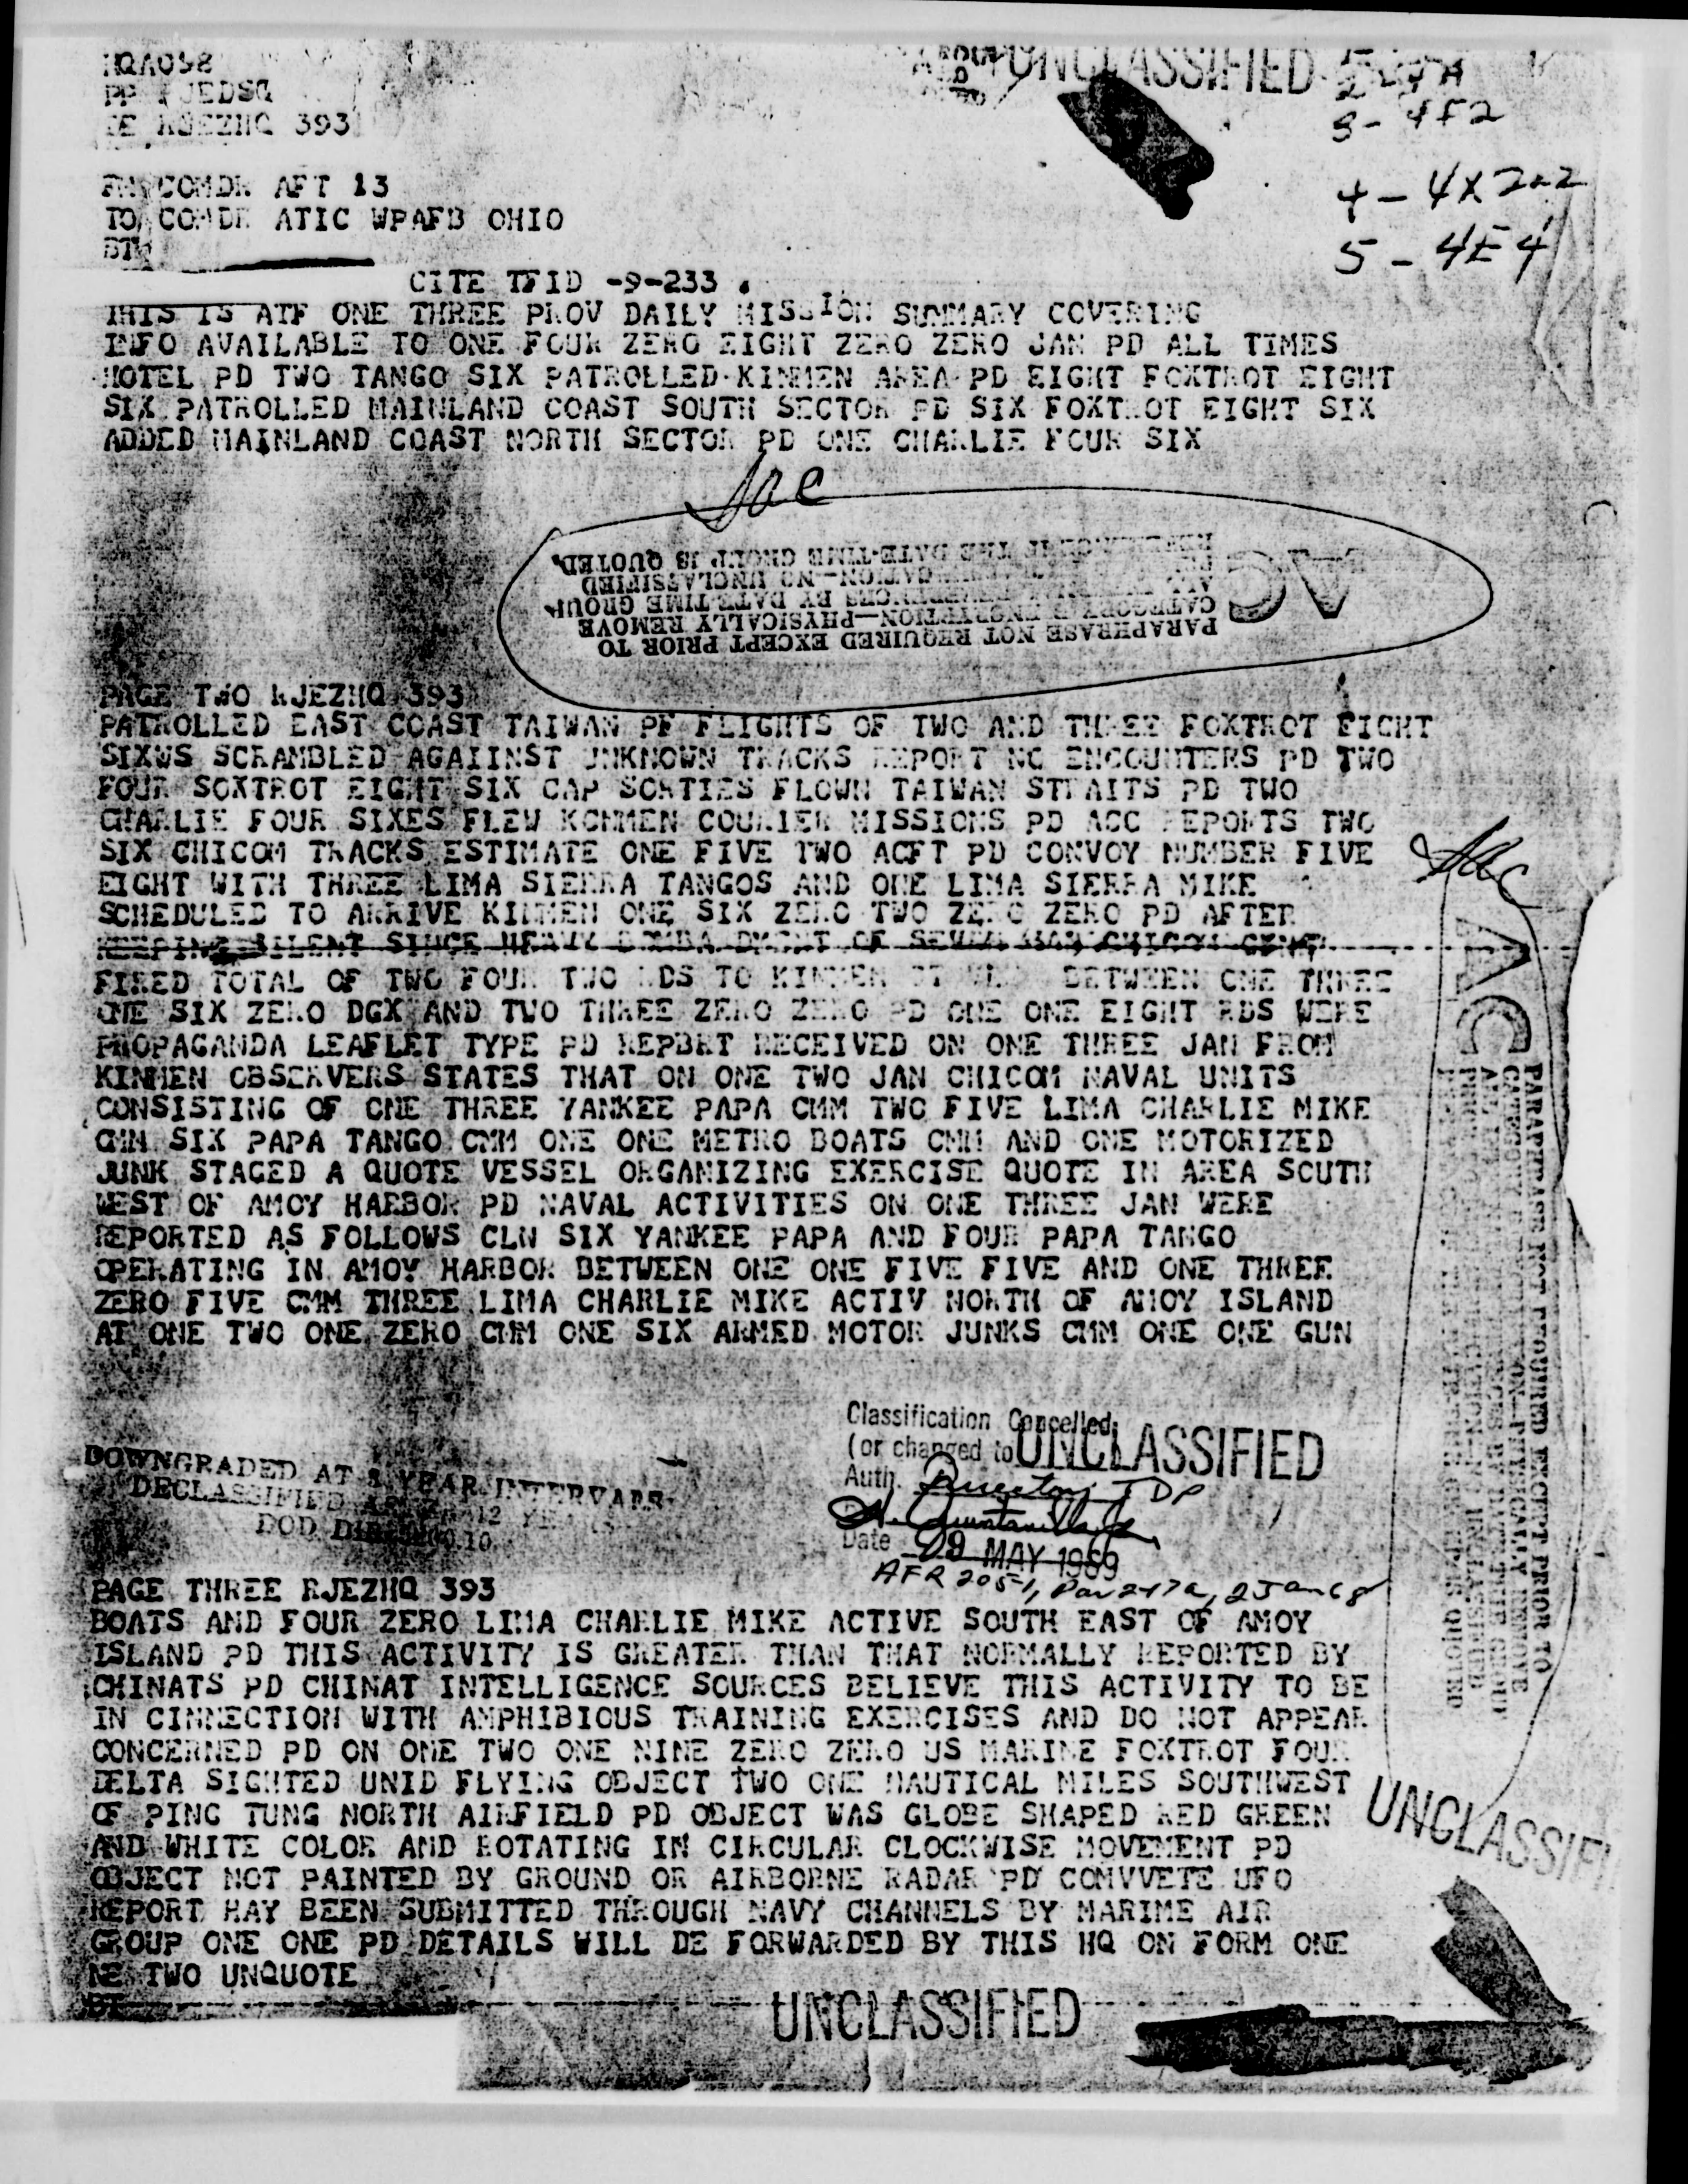 HQA098
PP RJEDSQ
DE RJEZHQ 393
UNCLASSIFIED
3- 4F2
4- 4X2a2
5- 4E4
FM COMDR AFT 13
TO COMDR ATIC WPAFB OHIO
BT
CITE TFID -9-233 .
THIS IS ATF ONE THREE PROV DAILY MISSION SUMMARY COVERING
INFO AVAILABLE TO ONE FOUR ZERO EIGHT ZERO ZERO JAN PD ALL TIMES
HOTEL PD TWO TANGO SIX PATROLLED KINMEN AREA PD EIGHT FOXTROT EIGHT
SIX PATROLLED MAINLAND COAST SOUTH SECTOR PD SIX FOXTROT EIGHT SIX
ADDED MAINLAND COAST NORTH SECTOR PD ONE CHARLIE FOUR SIX
AC
PARAPHRASE NOT REQUIRED EXCEPT PRIOR TO
CATEGORY B ENCRYPTION—PHYSICALLY REMOVE
BY DATE-TIME GROUP
—NO UNCLASSIFIED
IF THE DATE-TIME GROUP IS QUOTED.
PAGE TWO RJEZHQ 393
PATROLLED EAST COAST TAIWAN PF FLIGHTS OF TWO AND THREE FOXTROT EIGHT
SIXWS SCRAMBLED AGAIINST UNKNOWN TRACKS REPORT NO ENCOUNTERS PD TWO
FOUR SOXTROT EIGHT SIX CAP SORTIES FLOWN TAIWAN STRAITS PD TWO
CHARLIE FOUR SIXES FLEW KCMMEN COURIER MISSIONS PD ACC REPORTS TWO
SIX CHICOM TRACKS ESTIMATE ONE FIVE TWO ACFT PD CONVOY NUMBER FIVE
EIGHT WITH THREE LIMA SIERRA TANGOS AND ONE LIMA SIERRA MIKE
SCHEDULED TO ARRIVE KINMEN ONE SIX ZERO TWO ZERO ZERO PD AFTER
KEEPING SILENT SINCE HEAVY BOMBARDMENT OF SEVEN JAN CHICOM
FIRED TOTAL OF TWO FOUR TWO RDS TO KINMEN BETWEEN ONE THREE
ONE SIX ZERO DGX AND TWO THREE ZERO ZERO PD ONE ONE EIGHT RDS WERE
PROPAGANDA LEAFLET TYPE PD REPBRT RECEIVED ON ONE THREE JAN FROM
KINMEN OBSERVERS STATES THAT ON ONE TWO JAN CHICOM NAVAL UNITS
CONSISTING OF ONE THREE YANKEE PAPA CMM TWO FIVE LIMA CHARLIE MIKE
CMM SIX PAPA TANGO CMM ONE ONE METRO BOATS CMM AND ONE MOTORIZED
JUNK STAGED A QUOTE VESSEL ORGANIZING EXERCISE QUOTE IN AREA SOUTH
WEST OF AMOY HARBOR PD NAVAL ACTIVITIES ON ONE THREE JAN WERE
REPORTED AS FOLLOWS CLN SIX YANKEE PAPA AND FOUR PAPA TANGO
OPERATING IN AMOY HARBOR BETWEEN ONE ONE FIVE FIVE AND ONE THREE
ZERO FIVE CMM THREE LIMA CHARLIE MIKE ACTIV NORTH OF AMOY ISLAND
AT ONE TWO ONE ZERO CMM ONE SIX ARMED MOTOR JUNKS CMM ONE ONE GUN
AC
PARAPHRASE NOT REQUIRED EXCEPT PRIOR TO
Classification Cancelled
(or changed to UNCLASSIFIED
Auth. Director, TDP
H. Quintanilla Jr
Date 29 MAY 1969
AFR 205-1, Par 2-17a, 2 Jan 68
DOWNGRADED AT 3 YEAR INTERVALS
DECLASSIFIED AFTER 12 YEARS
DOD DIR 5200.10
PAGE THREE RJEZHQ 393
BOATS AND FOUR ZERO LIMA CHARLIE MIKE ACTIVE SOUTH EAST OF AMOY
ISLAND PD THIS ACTIVITY IS GREATER THAN THAT NORMALLY REPORTED BY
CHINATS PD CHINAT INTELLIGENCE SOURCES BELIEVE THIS ACTIVITY TO BE
IN CINNECTION WITH AMPHIBIOUS TRAINING EXERCISES AND DO NOT APPEAR
CONCERNED PD ON ONE TWO ONE NINE ZERO ZERO US MARINE FOXTROT FOUR
DELTA SIGHTED UNID FLYING OBJECT TWO ONE NAUTICAL MILES SOUTHWEST
OF PING TUNG NORTH AIRFIELD PD OBJECT WAS GLOBE SHAPED RED GREEN
AND WHITE COLOR AND ROTATING IN CIRCULAR CLOCKWISE MOVEMENT PD
OBJECT NOT PAINTED BY GROUND OR AIRBORNE RADAR PD COMVVETE UFO
REPORT HAY BEEN SUBMITTED THROUGH NAVY CHANNELS BY MARINE AIR
GROUP ONE ONE PD DETAILS WILL BE FORWARDED BY THIS HQ ON FORM ONE
NE TWO UNQUOTE
BT
UNCLASSIFI
UNCLASSIFIED